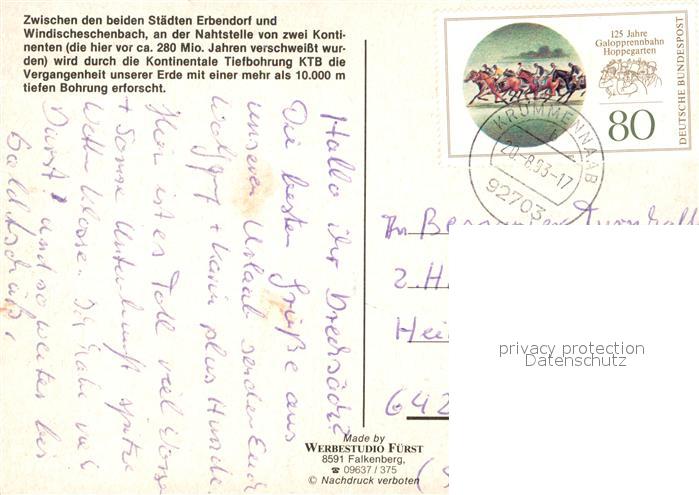 Zwischen den beiden Städten Erbendorf und
Windischeschenbach, an der Nahtstelle von zwei Konti-
nenten (die hier vor ca. 280 Mio. Jahren verschweißt wur-
den) wird durch die Kontinentale Tiefbohrung KTB die
Vergangenheit unserer Erde mit einer mehr als 10.000 m
tiefen Bohrung erforscht.
125 Jahre
Galopprennbahn
Hoppegarten
80
DEUTSCHE BUNDESPOST
KRUMMENNAAB
20.-8.93-17
92703
Hallo ihr
Die besten Grüße aus
unserem Urlaub senden Euch
Wolfgang + Karin plus Hunde.
Hier ist es Toll viel Wasser
+ Sonne Unterkunft spitze
Wetter klasse. Ich habe viel
Durst! und so weiter bis
Bald Tschüß,
An
2. H
Hei
642
Made by
WERBESTUDIO FÜRST
8591 Falkenberg,
☎ 09637 / 375
© Nachdruck verboten
privacy protection
Datenschutz